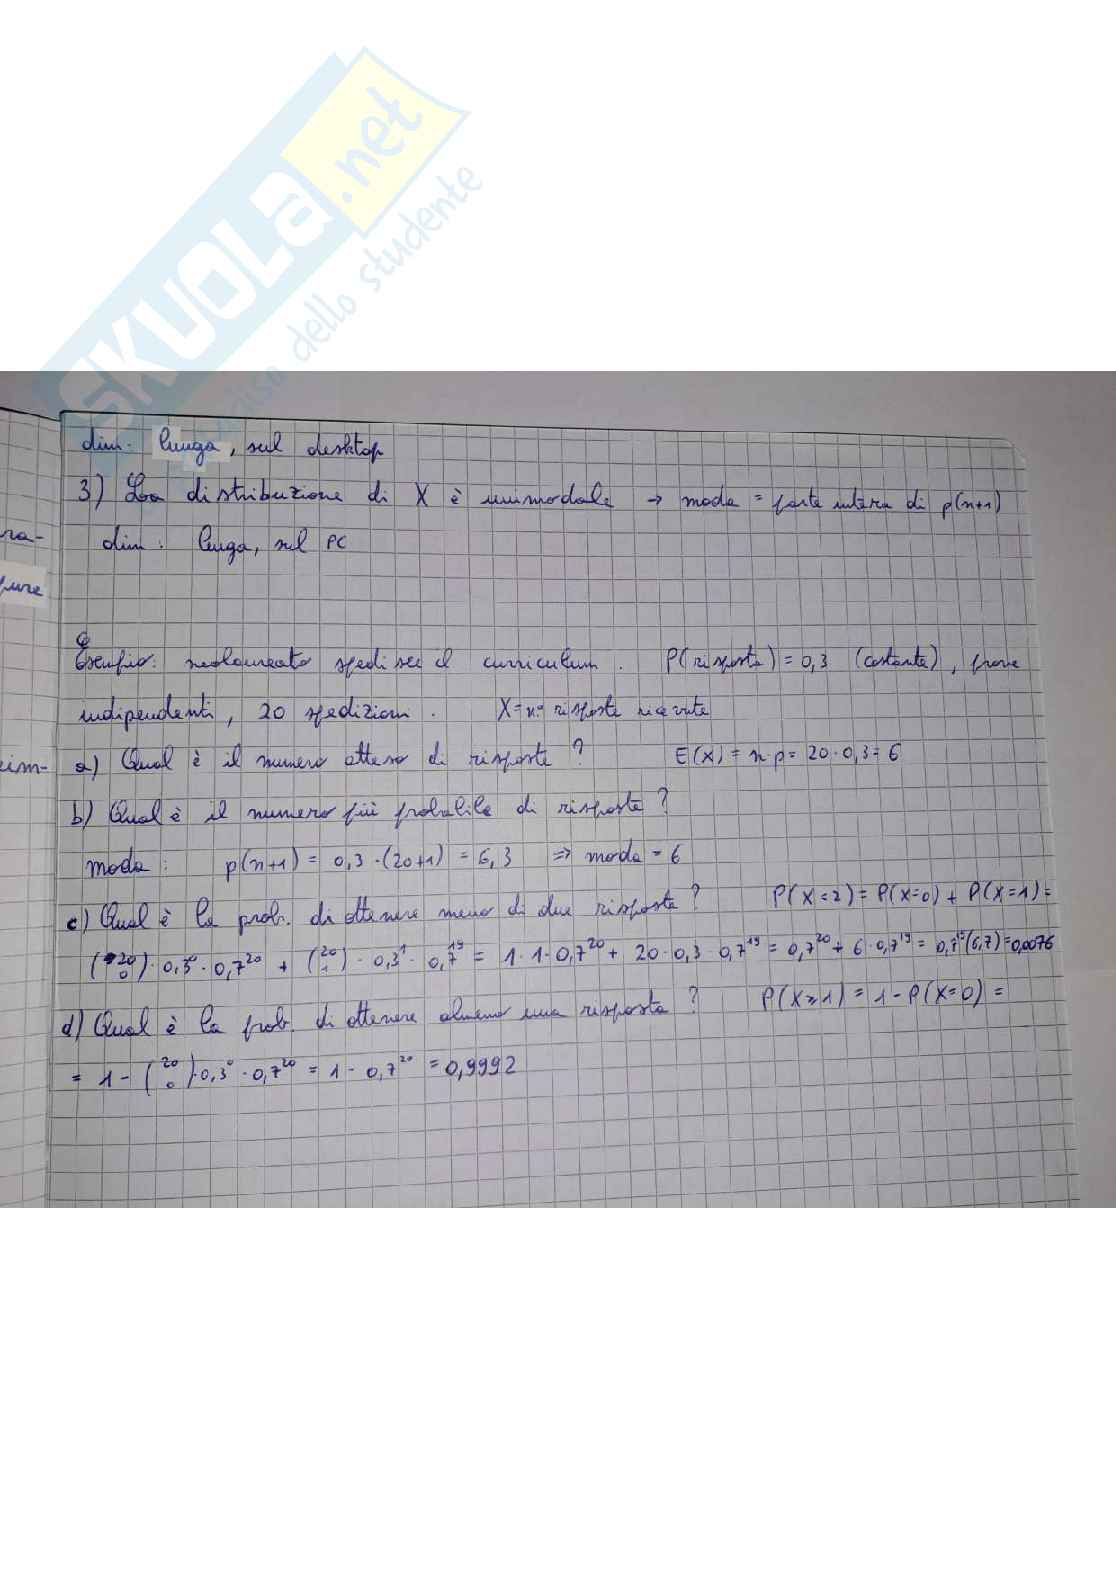 SKUOLA.net
dello studente
dim. lunga, sul desktop
3) La distribuzione di X è unimodale → moda = parte intera di p(n+1)
ra-
dim. lunga, sul PC
pure
Esempio: neolaureato spedisce il curriculum. P(risposta) = 0,3 (costante), prove
indipendenti, 20 spedizioni. X = n° risposte ricevute
eim-
a) Qual è il numero atteso di risposte? E(X) = n·p = 20·0,3 = 6
b) Qual è il numero più probabile di risposte?
moda: p(n+1) = 0,3·(20+1) = 6,3 ⇒ moda = 6
c) Qual è la prob. di ottenere meno di due risposte? P(X<2) = P(X=0) + P(X=1) =
(20 0)·0,3⁰·0,7²⁰ + (20 1)·0,3¹·0,7¹⁹ = 1·1·0,7²⁰ + 20·0,3·0,7¹⁹ = 0,7²⁰ + 6·0,7¹⁹ = 0,7¹⁹(6,7) = 0,0076
d) Qual è la prob. di ottenere almeno una risposta? P(X≥1) = 1 - P(X=0) =
= 1 - (20 0)·0,3⁰·0,7²⁰ = 1 - 0,7²⁰ = 0,9992